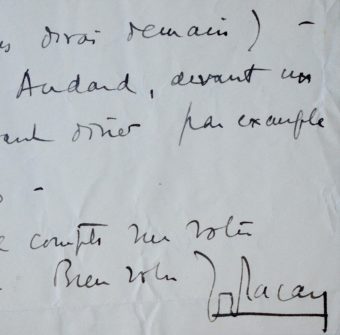 dirai demain) –
Audard, devant un
dîner par exemple
–
compte sur votre
Bien votre JLacan